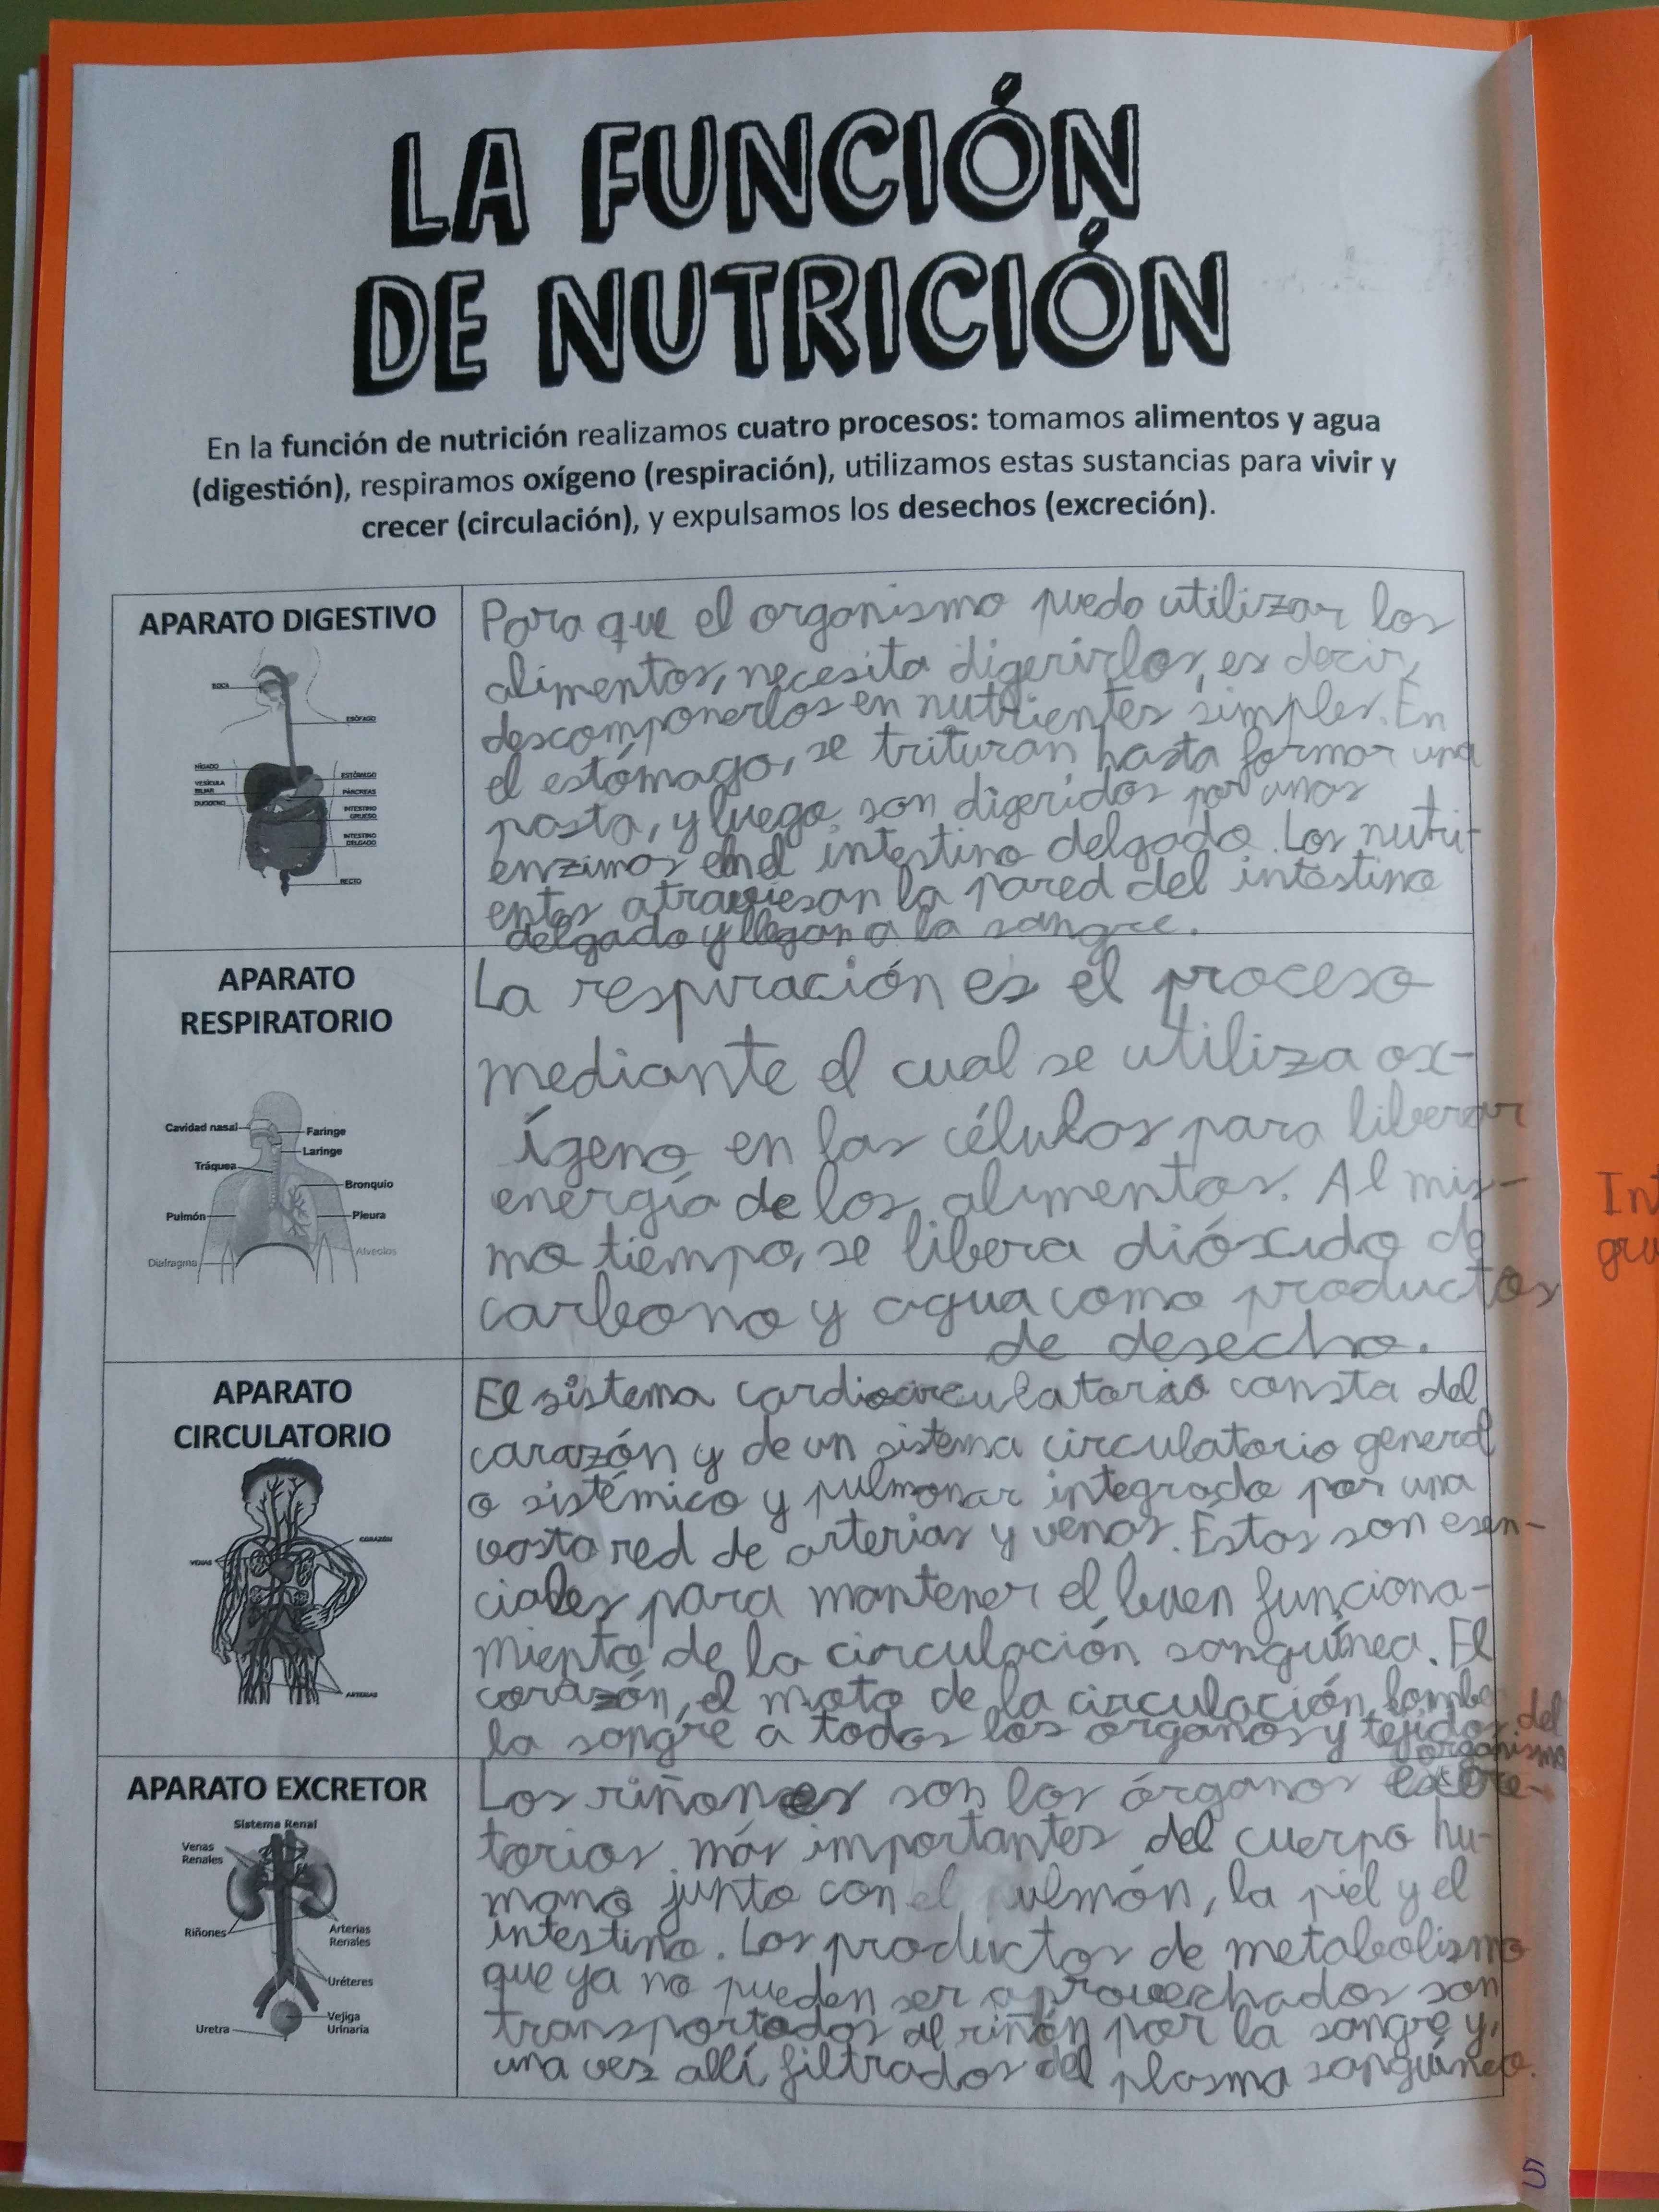 LA FUNCIÓN
DE NUTRICIÓN
En la función de nutrición realizamos cuatro procesos: tomamos alimentos y agua
(digestión), respiramos oxígeno (respiración), utilizamos estas sustancias para vivir y
crecer (circulación), y expulsamos los desechos (excreción).
APARATO DIGESTIVO
BOCA
ESÓFAGO
HÍGADO
VESÍCULA
BILIAR
DUODENO
ESTÓMAGO
PÁNCREAS
INTESTINO
GRUESO
INTESTINO
DELGADO
RECTO
Para que el organismo pueda utilizar los
alimentos, necesita digerirlos, es decir,
descomponerlos en nutrientes simples. En
el estómago, se trituran hasta formar una
pasta, y luego son digeridos por unas
enzimas en el intestino delgado. Los nutri-
entes atraviesan la pared del intestino
delgado y llegan a la sangre.
APARATO
RESPIRATORIO
Cavidad nasal
Faringe
Laringe
Tráquea
Bronquio
Pulmón
Pleura
Alveolos
Diafragma
La respiración es el proceso
mediante el cual se utiliza ox-
ígeno en las células para liberar
energía de los alimentos. Al mis-
mo tiempo, se libera dióxido de
carbono y agua como productos
de desecho.
APARATO
CIRCULATORIO
CORAZÓN
VENAS
ARTERIAS
El sistema cardiocirculatorio consta del
corazón y de un sistema circulatorio general
o sistémico y pulmonar integrado por una
vasta red de arterias y venas. Estas son esen-
ciales para mantener el buen funciona-
miento de la circulación sanguínea. El
corazón, el moto de la circulación, bombea
la sangre a todos los órganos y tejidos del
organismo
APARATO EXCRETOR
Sistema Renal
Venas
Renales
Riñones
Arterias
Renales
Uréteres
Vejiga
Urinaria
Uretra
Los riñones son los órganos excre-
torios más importantes del cuerpo hu-
mano junto con el ulmón, la piel y el
intestino. Los productos de metabolismo
que ya no pueden ser aprovechados son
transportados al riñón por la sangre y,
una vez allí, filtrados del plasma sanguíneo.
5
Int
gru